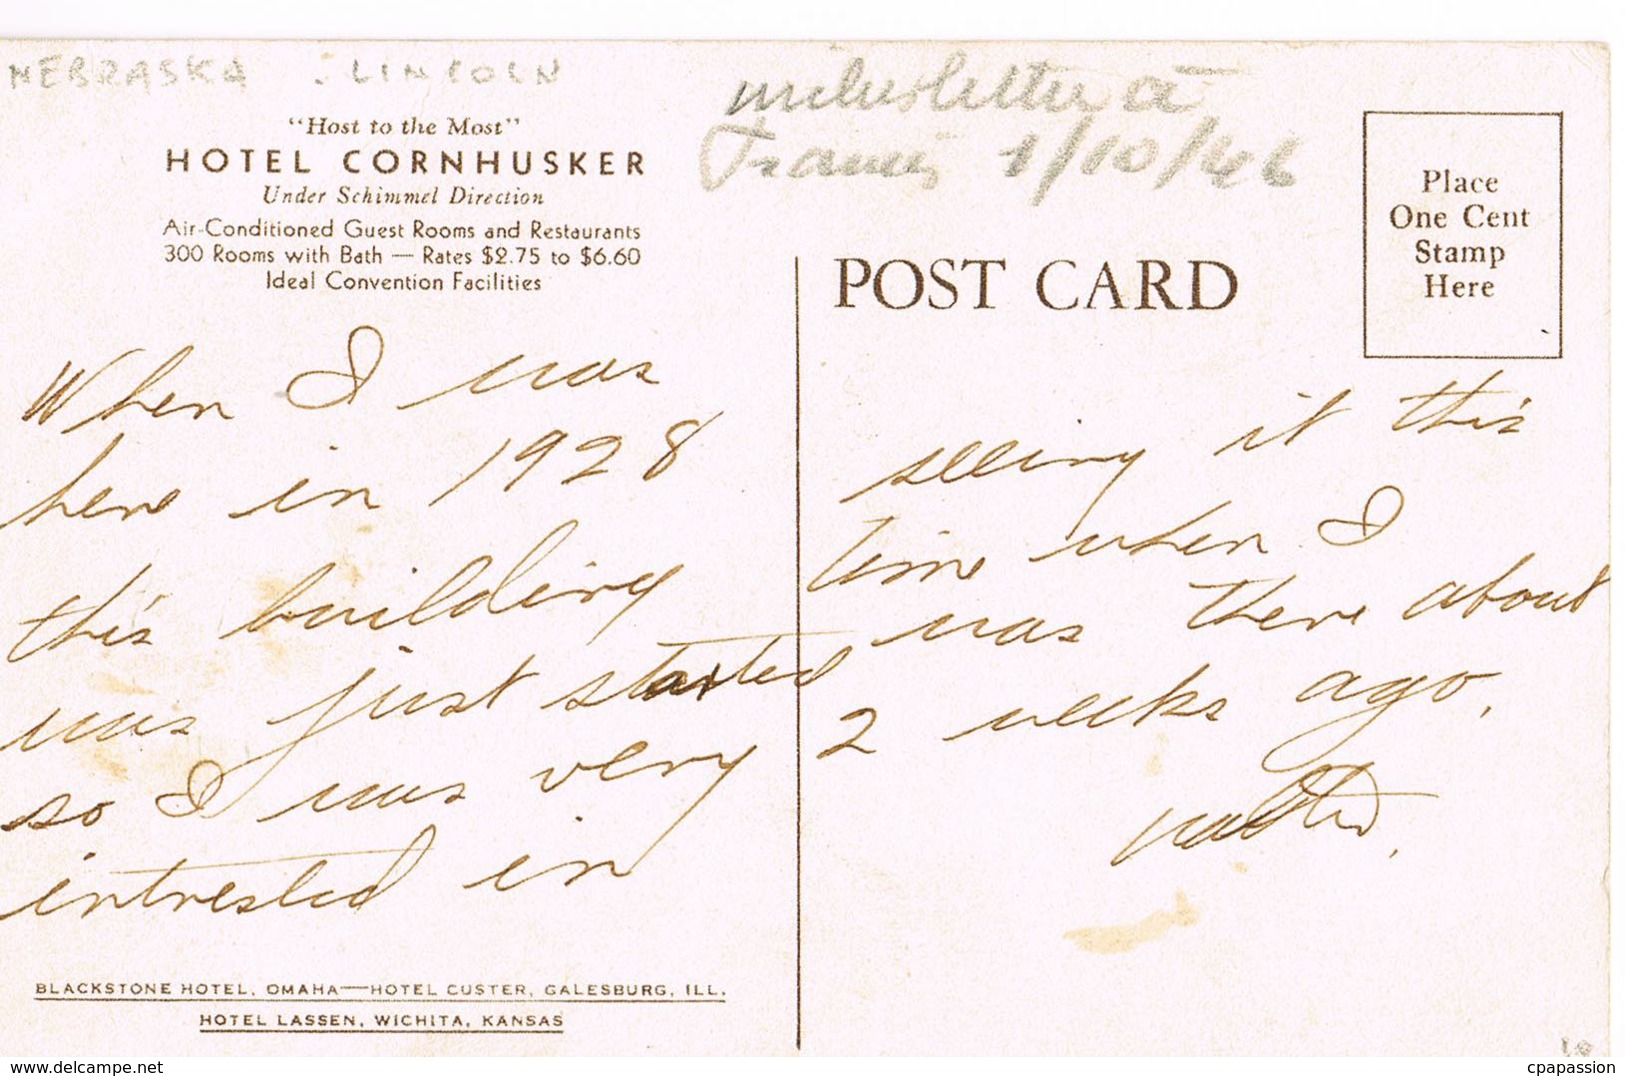 NEBRASKA : LINCOLN
"Host to the Most"
HOTEL CORNHUSKER
Under Schimmel Direction
Air-Conditioned Guest Rooms and Restaurants
300 Rooms with Bath — Rates $2.75 to $6.60
Ideal Convention Facilities
When I was
here in 1928
this building
was just started
so I was very
intrested in
BLACKSTONE HOTEL, OMAHA—HOTEL CUSTER, GALESBURG, ILL.
HOTEL LASSEN, WICHITA, KANSAS
letter a
1/10/46
POST CARD
Place
One Cent
Stamp
Here
seeing it this
time when I
was there about
2 weeks ago.
Walter.
10
www.delcampe.net
cpapassion